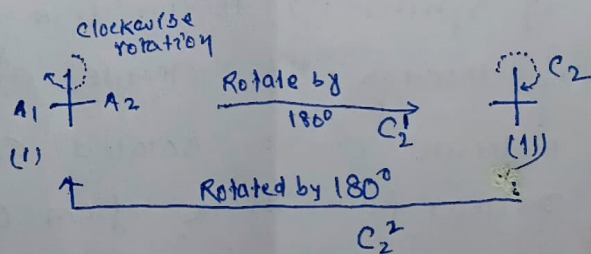 Clockwise
rotation
A1 A2
(I)
Rotate by
180°
C₂¹
C₂
(II)
Rotated by 180°
C₂²